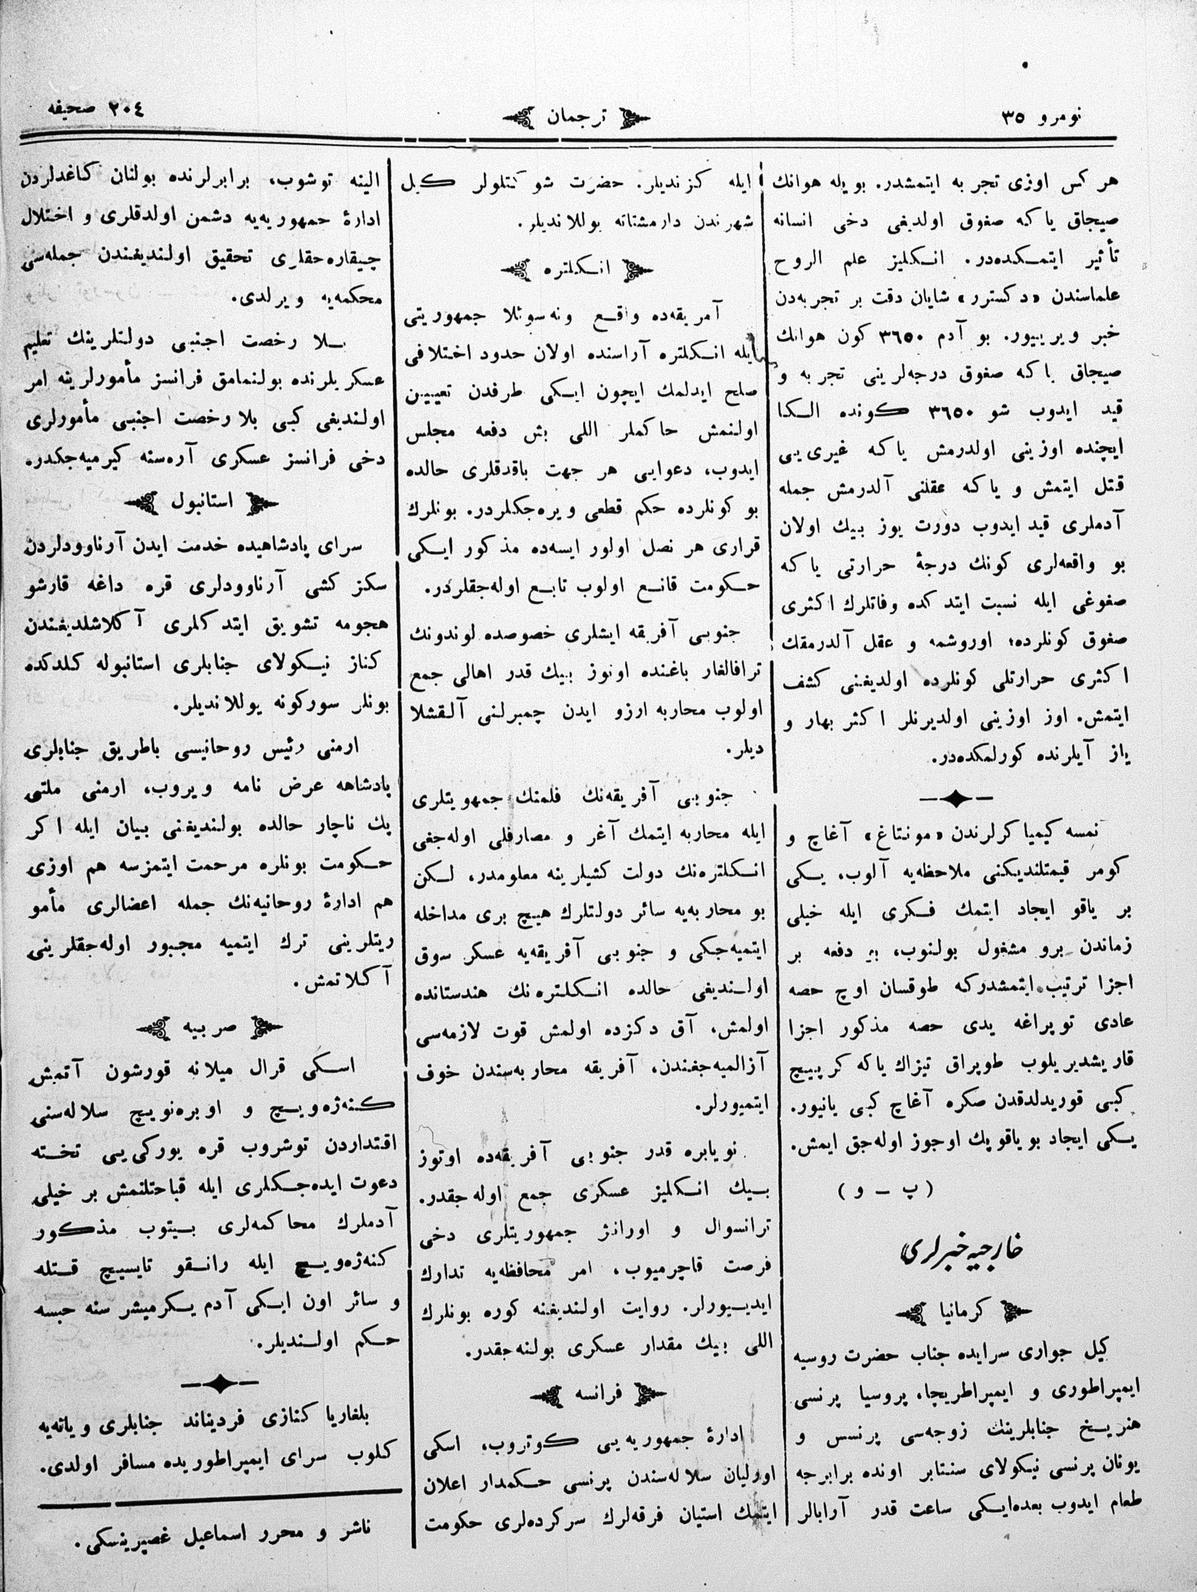 نومرو ٣٥
ترجمان
٢٠٤ صحیفه
هر کس اوزی تجربه ایتمشدر. بویله هوانك
صیجاق یاکه صغوق اولدیغی دخی انسانه
تأثیر ایتمکده‌در. انکلیز علم الروح
علماسندن «دکسترر» شایان دقت بر تجربه‌دن
خبر ویرییور. بو آدم ٣٦٥٠ کون هوانك
صیجاق یاکه صغوق درجه‌لرینی تجربه و
قید ایدوب شو ٣٦٥٠ کونده الکا
ایچنده اوزینی اولدرمش یاکه غیری‌یی
قتل ایتمش و یاکه عقلنی آلدرمش جمله
آدملری قید ایدوب دورت یوز بیك اولان
بو واقعه‌لری کونك درجهٔ حرارتی یاکه
صغوغی ایله نسبت ایتدکده وفاتلرك اکثری
صغوق کونلرده، اوروشمه و عقل آلدرمقك
اکثری حرارتلی کونلرده اولدیغنی کشف
ایتمش. اوز اوزینی اولدیرنلر اکثر بهار و
یاز آیلرنده کورلمکده‌در.
نمسه کیمیاکرلرندن «مونتاغ» آغاچ و
کومر قیمتلندیکنی ملاحظه‌یه آلوب، یکی
بر یاقو ایجاد ایتمك فکری ایله خیلی
زماندن برو مشغول بولنوب، بر دفعه بر
اجزا ترتیب ایتمشدرکه طوقسان اوچ حصه
عادی توپراغه یدی حصه مذکور اجزا
قاریشدیریلوب طوپراق تیزاك یاکه کرپیچ
کبی قوریدلدقدن صکره آغاچ کبی یانیور.
یکی ایجاد بو یاقو پك اوجوز اوله‌جق ایمش.
( پ – و )
خارجیه خبرلری
کرمانیا
کیل جواری سرایده جناب حضرت روسیه
ایمپراطوری و ایمپراطریچا، پروسیا پرنسی
هنریخ جنابلرینك زوجه‌سی پرنسس و
یونان پرنسی نیکولای سنتابر اونده برابرجه
طعام ایدوب بعده‌ایکی ساعت قدر آرابالر
ایله کزندیلر. حضرت شوکتلولر کیل
شهرندن دارمشتاته یوللاندیلر.
انکلتره
آمریقه‌ده واقع ونه‌سوئلا جمهوریتی
ایله انکلتره آراسنده اولان حدود اختلافی
صلح ایدلمك ایچون ایکی طرفدن تعیین
اولنمش حاکملر اللی بش دفعه مجلس
ایدوب، دعوایی هر جهت باقدقلری حالده
بو کونلرده حکم قطعی ویره‌جکلردر. بونلرك
قراری هر نصل اولور ایسه‌ده مذکور ایکی
حکومت قانع اولوب تابع اوله‌جقلردر.
جنوبی آفریقه ایشلری خصوصده لوندونك
ترافالغار باغنده اونوز بیك قدر اهالی جمع
اولوب محاربه ارزو ایدن چمبرلنی آلقشلا
دیلر.
جنوبی آفریقه‌نك فلمنك جمهوریتلری
ایله محاربه ایتمك آغر و مصارفلی اوله‌جغی
انکلتره‌نك دولت کشیلرینه معلومدر، لکن
بو محاربه‌یه سائر دولتلرك هیچ بری مداخله
ایتمیه‌جکی و جنوبی آفریقه‌یه عسکر سوق
اولندیغی حالده انکلتره‌نك هندستانده
اولمش، آق دکزده اولمش قوت لازمه‌سی
آزالمیه‌جغندن، آفریقه محاربه‌سندن خوف
ایتمیورلر.
نویابره قدر جنوبی آفریقه‌ده اوتوز
بیك انکلیز عسکری جمع اوله‌جقدر.
ترانسوال و اورانژ جمهوریتلری دخی
فرصت قاچرمیوب، امر محافظه‌یه تدارك
ایدییورلر. روایت اولندیغنه کوره بونلرك
اللی بیك مقدار عسکری بولنه‌جقدر.
فرانسه
ادارهٔ جمهوریه‌یی کوتروب، اسکی
اورلیان سلاله‌سندن پرنسی حکمدار اعلان
ایتمك استیان فرقه‌لرك سرکرده‌لری حکومت
الینه توشوب، برابرلرنده بولنان کاغدلردن
ادارهٔ جمهوریه‌یه دشمن اولدقلری و اختلال
چیقاره‌جقلری تحقیق اولندیغندن جمله‌سی
محکمه‌یه ویرلدی.
بلا رخصت اجنبی دولتلرینك تعلیم
عسکریلرنده بولنمامق فرانسز مأمورلرینه امر
اولندیغی کبی بلا رخصت اجنبی مأمورلری
دخی فرانسز عسکری آره‌سنه کیرمیه‌جکدر.
استانبول
سرای پادشاهیده خدمت ایدن آرناوودلردن
سکز کشی آرناوودلری قره داغه قارشو
هجومه تشویق ایتدکلری آکلاشلدیغندن
کناز نیکولای جنابلری استانبوله کلدکده
بونلر سورکونه یوللاندیلر.
ارمنی رئیس روحانیسی باطریق جنابلری
پادشاهه عرض نامه ویروب، ارمنی ملتی
پك ناچار حالده بولندیغنی بیان ایله اکر
حکومت بونلره مرحمت ایتمزسه هم اوزی
هم ادارهٔ روحانیه‌نك جمله اعضالری مأمو
ریتلرینی ترك ایتمیه مجبور اوله‌جقلرینی
آکلاتمش.
صربیه
اسکی قرال میلانه قورشون آتمش
کنه‌ژه‌ویچ و اوبره‌نویچ سلاله‌سنی
اقتداردن توشروب قره یورکی‌یی تخته
دعوت ایده‌جکلری ایله قباحتلنمش بر خیلی
آدملرك محاکمه‌لری بیتوب مذکور
کنه‌ژه‌ویچ ایله رانقو تایسیچ قتله
و سائر اون ایکی آدم یکرمیشر سنه حبسه
حکم اولندیلر.
بلغاریا کنازی فردیناند جنابلری ویانه‌یه
کلوب سرای ایمپراطوریده مسافر اولدی.
ناشر و محرر اسماعیل غصپرینسکی.